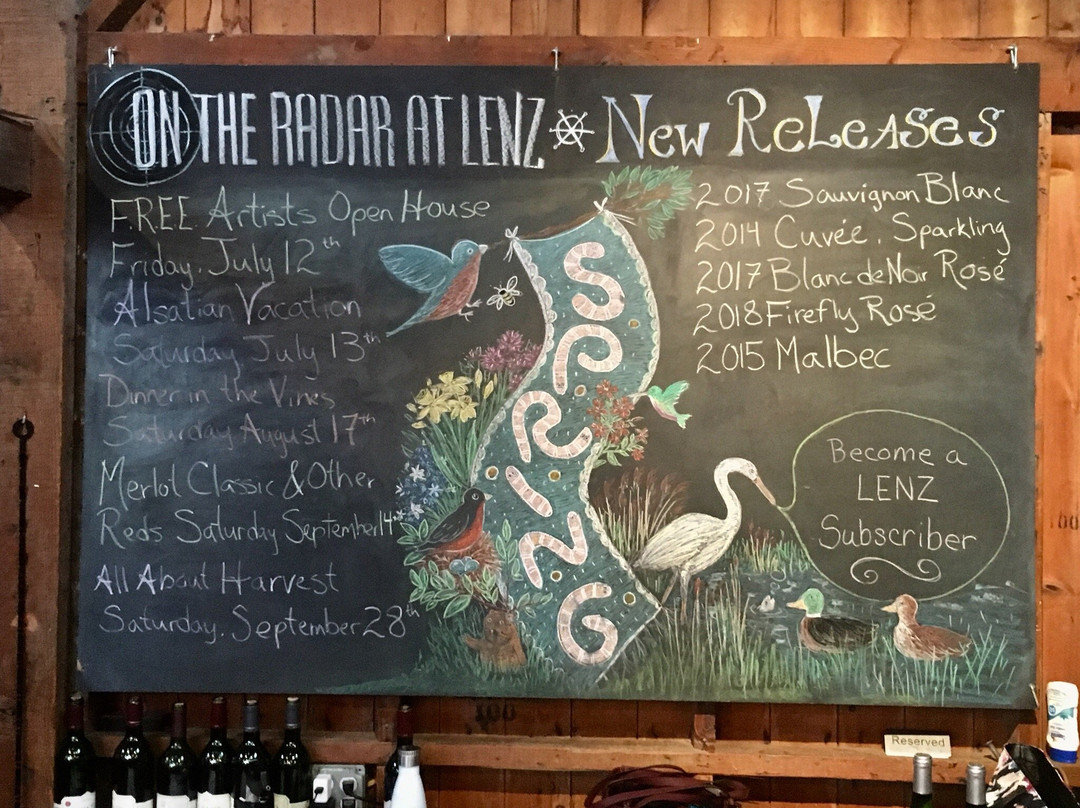 ON THE RADAR AT LENZ
FREE Artists Open House
Friday. July 12th
Alsatian Vacation
Saturday July 13th
Dinner in the Vines
Saturday August 17th
Merlot Classic & Other
Reds Saturday September 14th
All About Harvest
Saturday. September 28th
SPRING
New ReLeASeS
2017 Sauvignon Blanc
2014 Cuvée. Sparkling
2017 Blanc de Noir Rosé
2018 Firefly Rosé
2015 Malbec
Become a
LENZ
Subscriber
100
100
Reserved